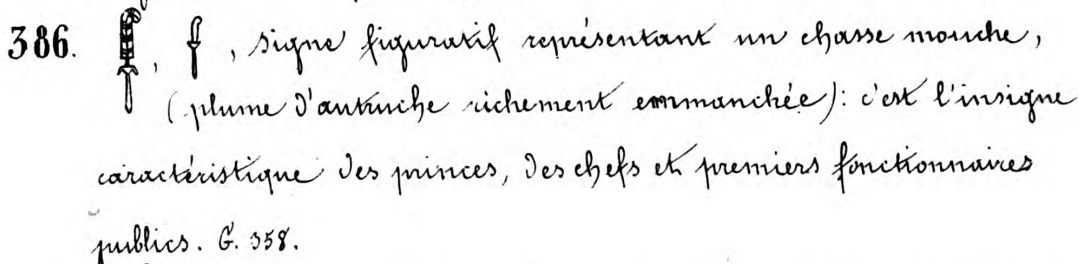 386. , , signe figuratif représentant un chasse mouche,
(plume d'autruche richement emmanchée): c'est l'insigne
caractéristique des princes, des chefs et premiers fonctionnaires
publics. G. 358.